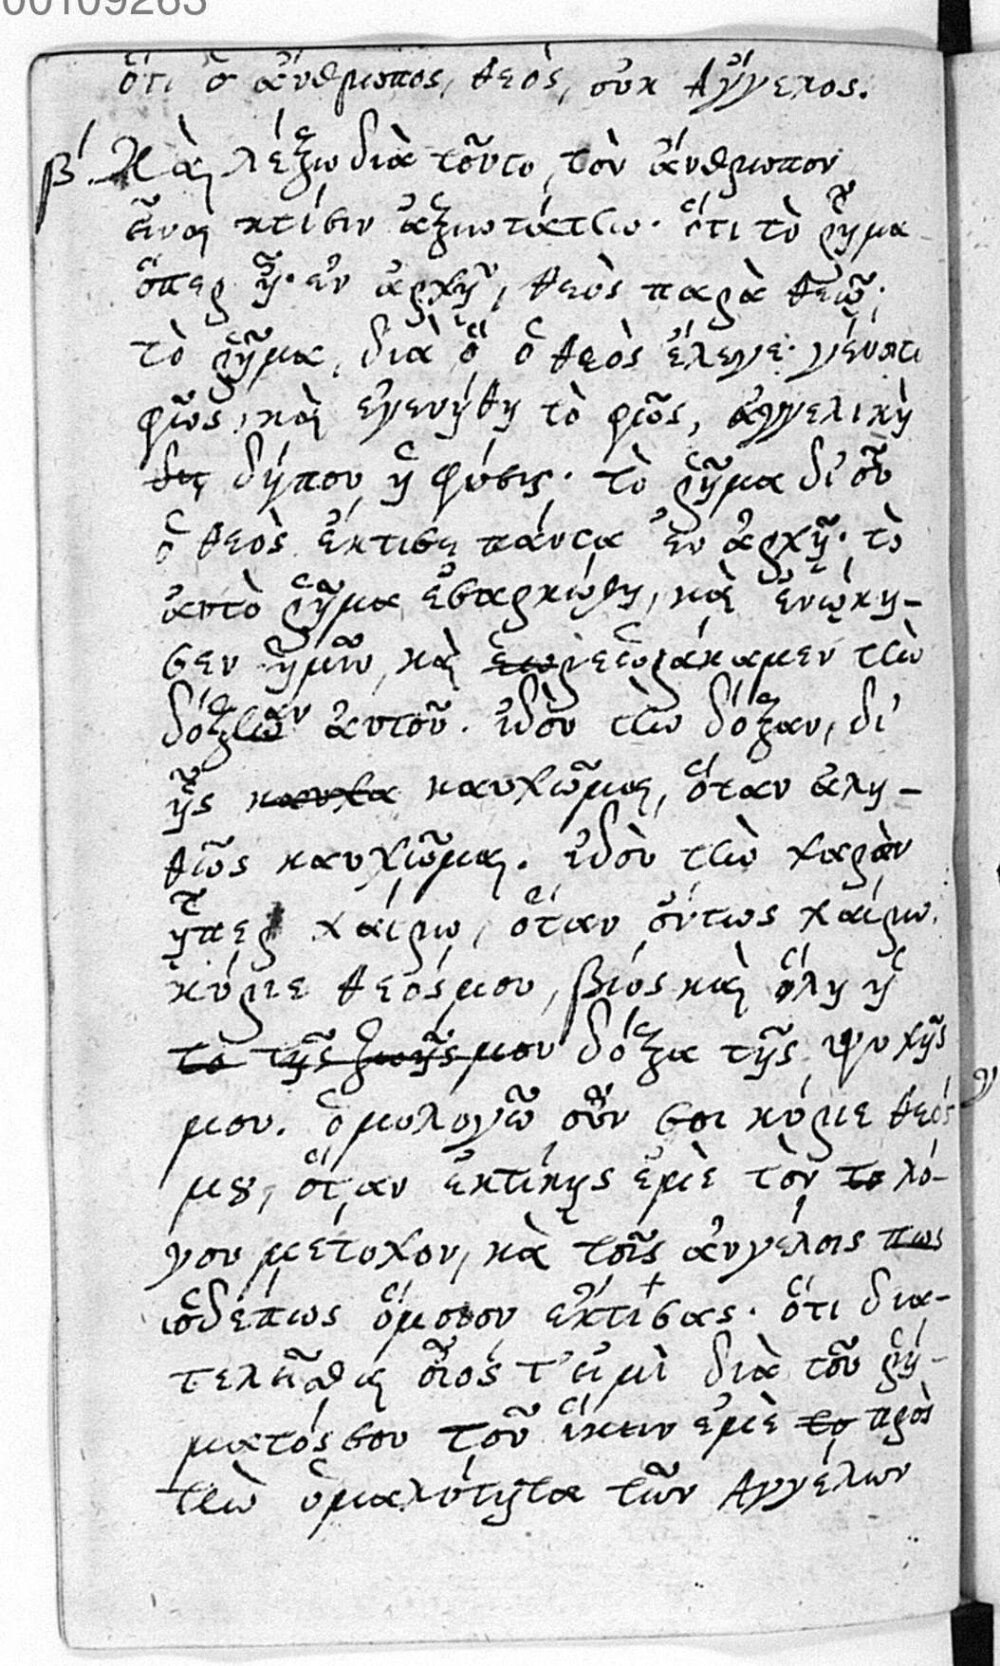 00109263
ὅτι ὁ ἄνθρωπος, θεὸς, οὐκ Ἄγγελος.
β΄. Καὶ λέξω διὰ τοῦτο, τὸν ἄνθρωπον
εἶναι κτίσιν ἀξιωτάτην· ὅτι τὸ ῥῆμα
ὅπερ ἦν ἐν ἀρχῇ, θεὸς παρὰ θεῷ·
τὸ ῥῆμα, διὰ ὃ ὁ θεὸς ἔλεγε· γένοιτο
φῶς, καὶ ἐγενήθη τὸ φῶς, ἀγγελικὴ
δήπου ἡ φύσις· τὸ ῥῆμα δι' οὗ
ὁ θεὸς ἔκτισε πάντα ἐν ἀρχῇ· τὸ
αὐτὸ ῥῆμα ἐσαρκώθη, καὶ ἐνῴκη-
σεν ἡμῖν, καὶ ἑωράκαμεν τὴν
δόξαν αὐτοῦ. ἰδοὺ τὴν δόξαν, δι'
ἧς καυχα καυχῶμαι, ὅταν ἀλη-
θῶς καυχῶμαι. ἰδοὺ τὴν χαρὰν
ᾗπερ χαίρω, ὅταν ὄντως χαίρω.
κύριε θεός μου, βίος καὶ ὅλη ἡ
το τῆς ζωῆς μου δόξα τῆς ψυχῆς
μου. ὁμολογῶ οὖν σοι κύριε θεός
μου, ὅταν ἐμὲ τὸν το λό-
γου μέτοχον, καὶ τοῖς ἀγγέλοις πως
ὅμοιον ἔκτισας· ὅτι δια-
τελεῖσθαι οἷός τ' εἰμὶ διὰ τοῦ ῥή-
ματός σου τοῦ ἐμὲ το πρὸς
τὴν ὁμαλότητα τῶν Ἀγγέλων